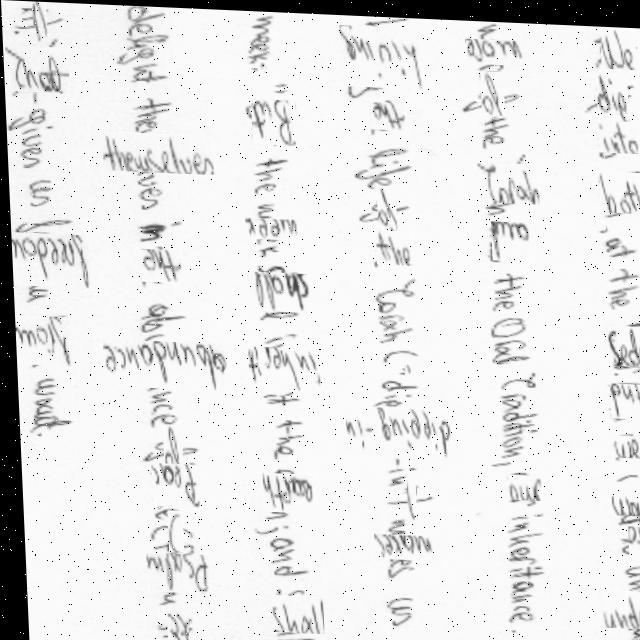 We dip into both at the
more of the Torah and the Oral Tradition, our inheritance.
living the life of the Torah dipping-in makes us
meek: "But the meek shall inherit the earth; and shall
delight themselves in the abundance of peace" (Psalm
That gives us freedom from want.